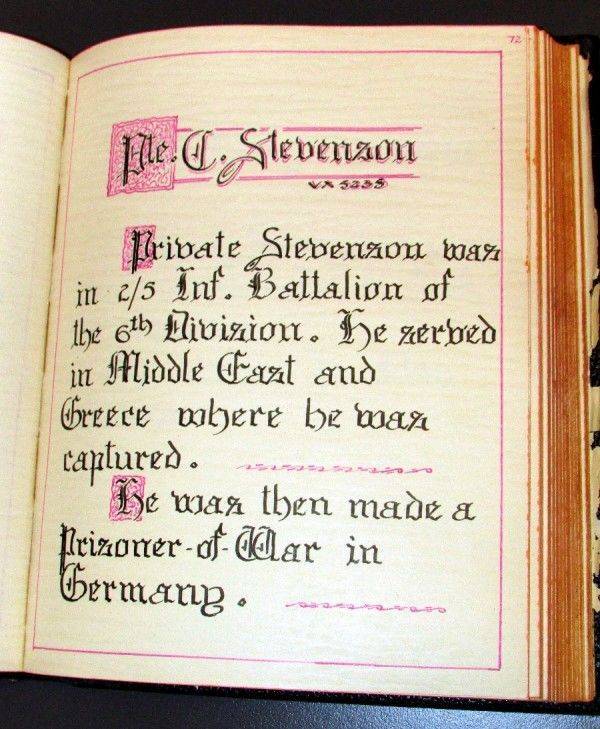 72
Pte. C. Stevenson
VX 5235
Private Stevenson was
in 2/5 Inf. Battalion of
the 6th Division. He served
in Middle East and
Greece where he was
captured.
He was then made a
Prisoner-of-War in
Germany.